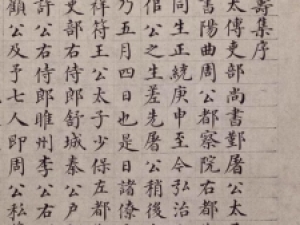 壽集序
太傅吏部尚書鄞屠公太子
書陽曲周公都察院右都
同生正統庚申至今弘治
佀公之生差先屠公稍後
乃五月四日也是日諸僚
祥符王公太子少保左都
吏部右侍郎舒城秦公戶
許公右侍郎睢州李公右
顧公及予七人即周公私